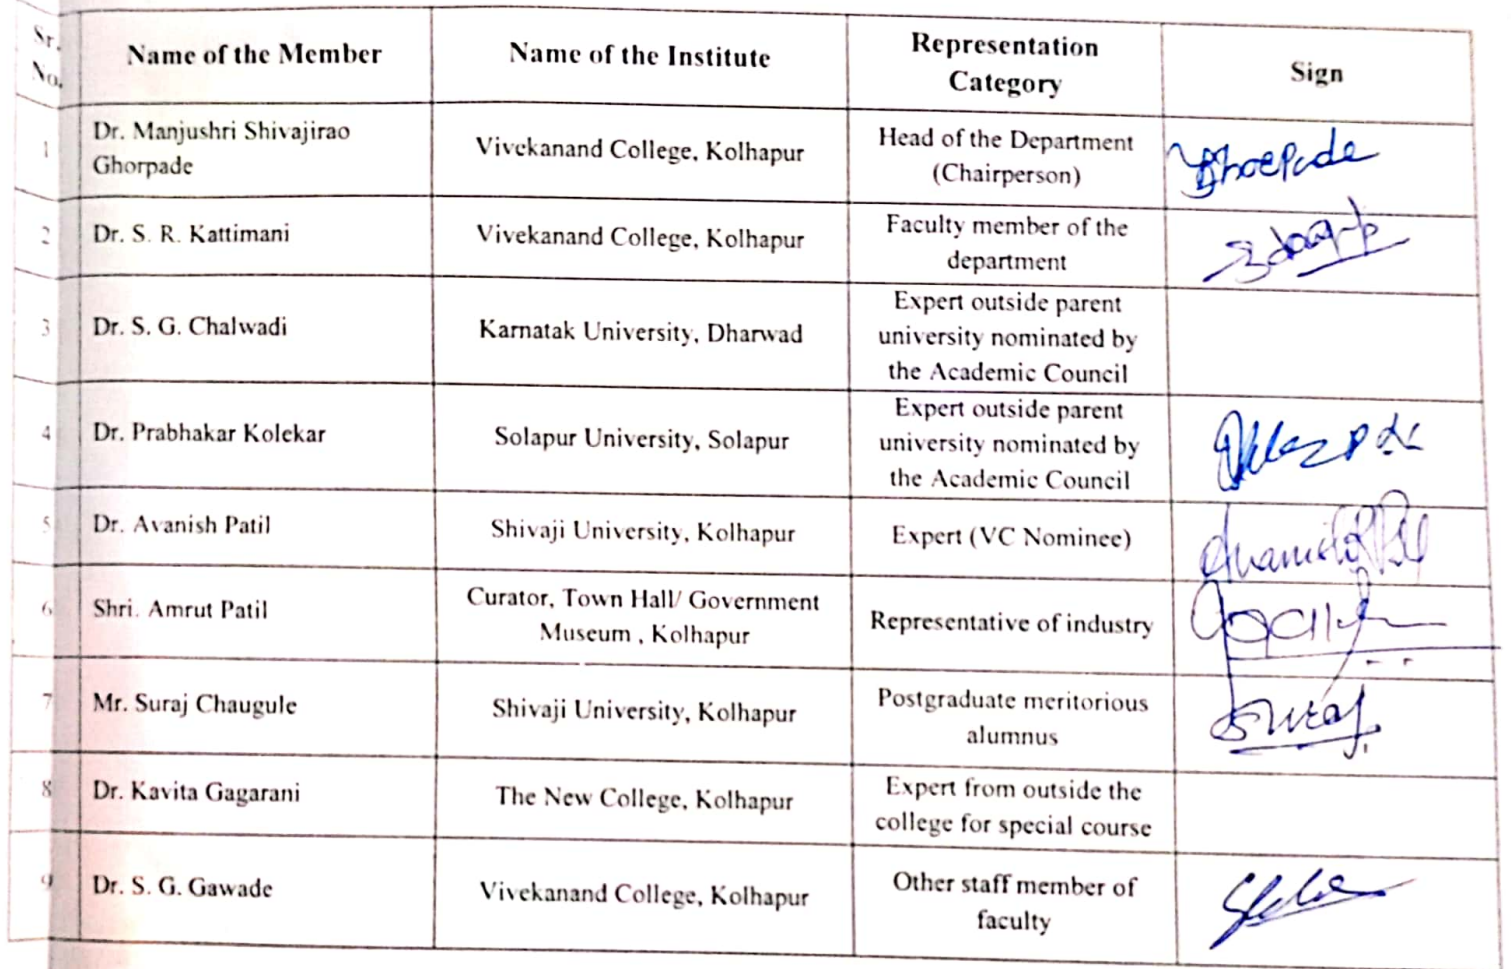 Sr. No.
Name of the Member
Name of the Institute
Representation
Category
Sign
1
Dr. Manjushri Shivajirao
Ghorpade
Vivekanand College, Kolhapur
Head of the Department
(Chairperson)
Ghorpade
2
Dr. S. R. Kattimani
Vivekanand College, Kolhapur
Faculty member of the
department
3
Dr. S. G. Chalwadi
Karnatak University, Dharwad
Expert outside parent
university nominated by
the Academic Council
4
Dr. Prabhakar Kolekar
Solapur University, Solapur
Expert outside parent
university nominated by
the Academic Council
5
Dr. Avanish Patil
Shivaji University, Kolhapur
Expert (VC Nominee)
6
Shri. Amrut Patil
Curator, Town Hall/ Government
Museum , Kolhapur
Representative of industry
7
Mr. Suraj Chaugule
Shivaji University, Kolhapur
Postgraduate meritorious
alumnus
Suraj
8
Dr. Kavita Gagarani
The New College, Kolhapur
Expert from outside the
college for special course
9
Dr. S. G. Gawade
Vivekanand College, Kolhapur
Other staff member of
faculty